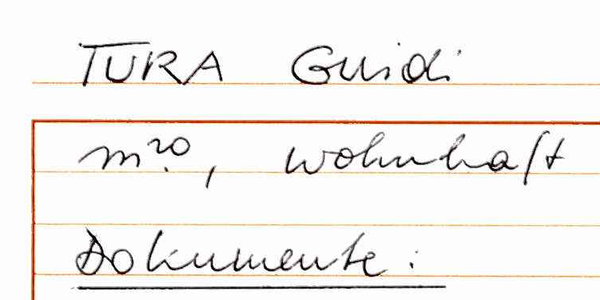 TURA Guidi
m.ro, wohnhaft
Dokumente: